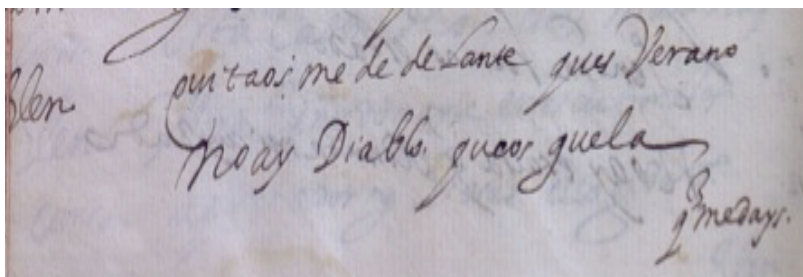 Blen
quitaos me de delante ques Verano
no ay Diablo. que os guela
q me days.